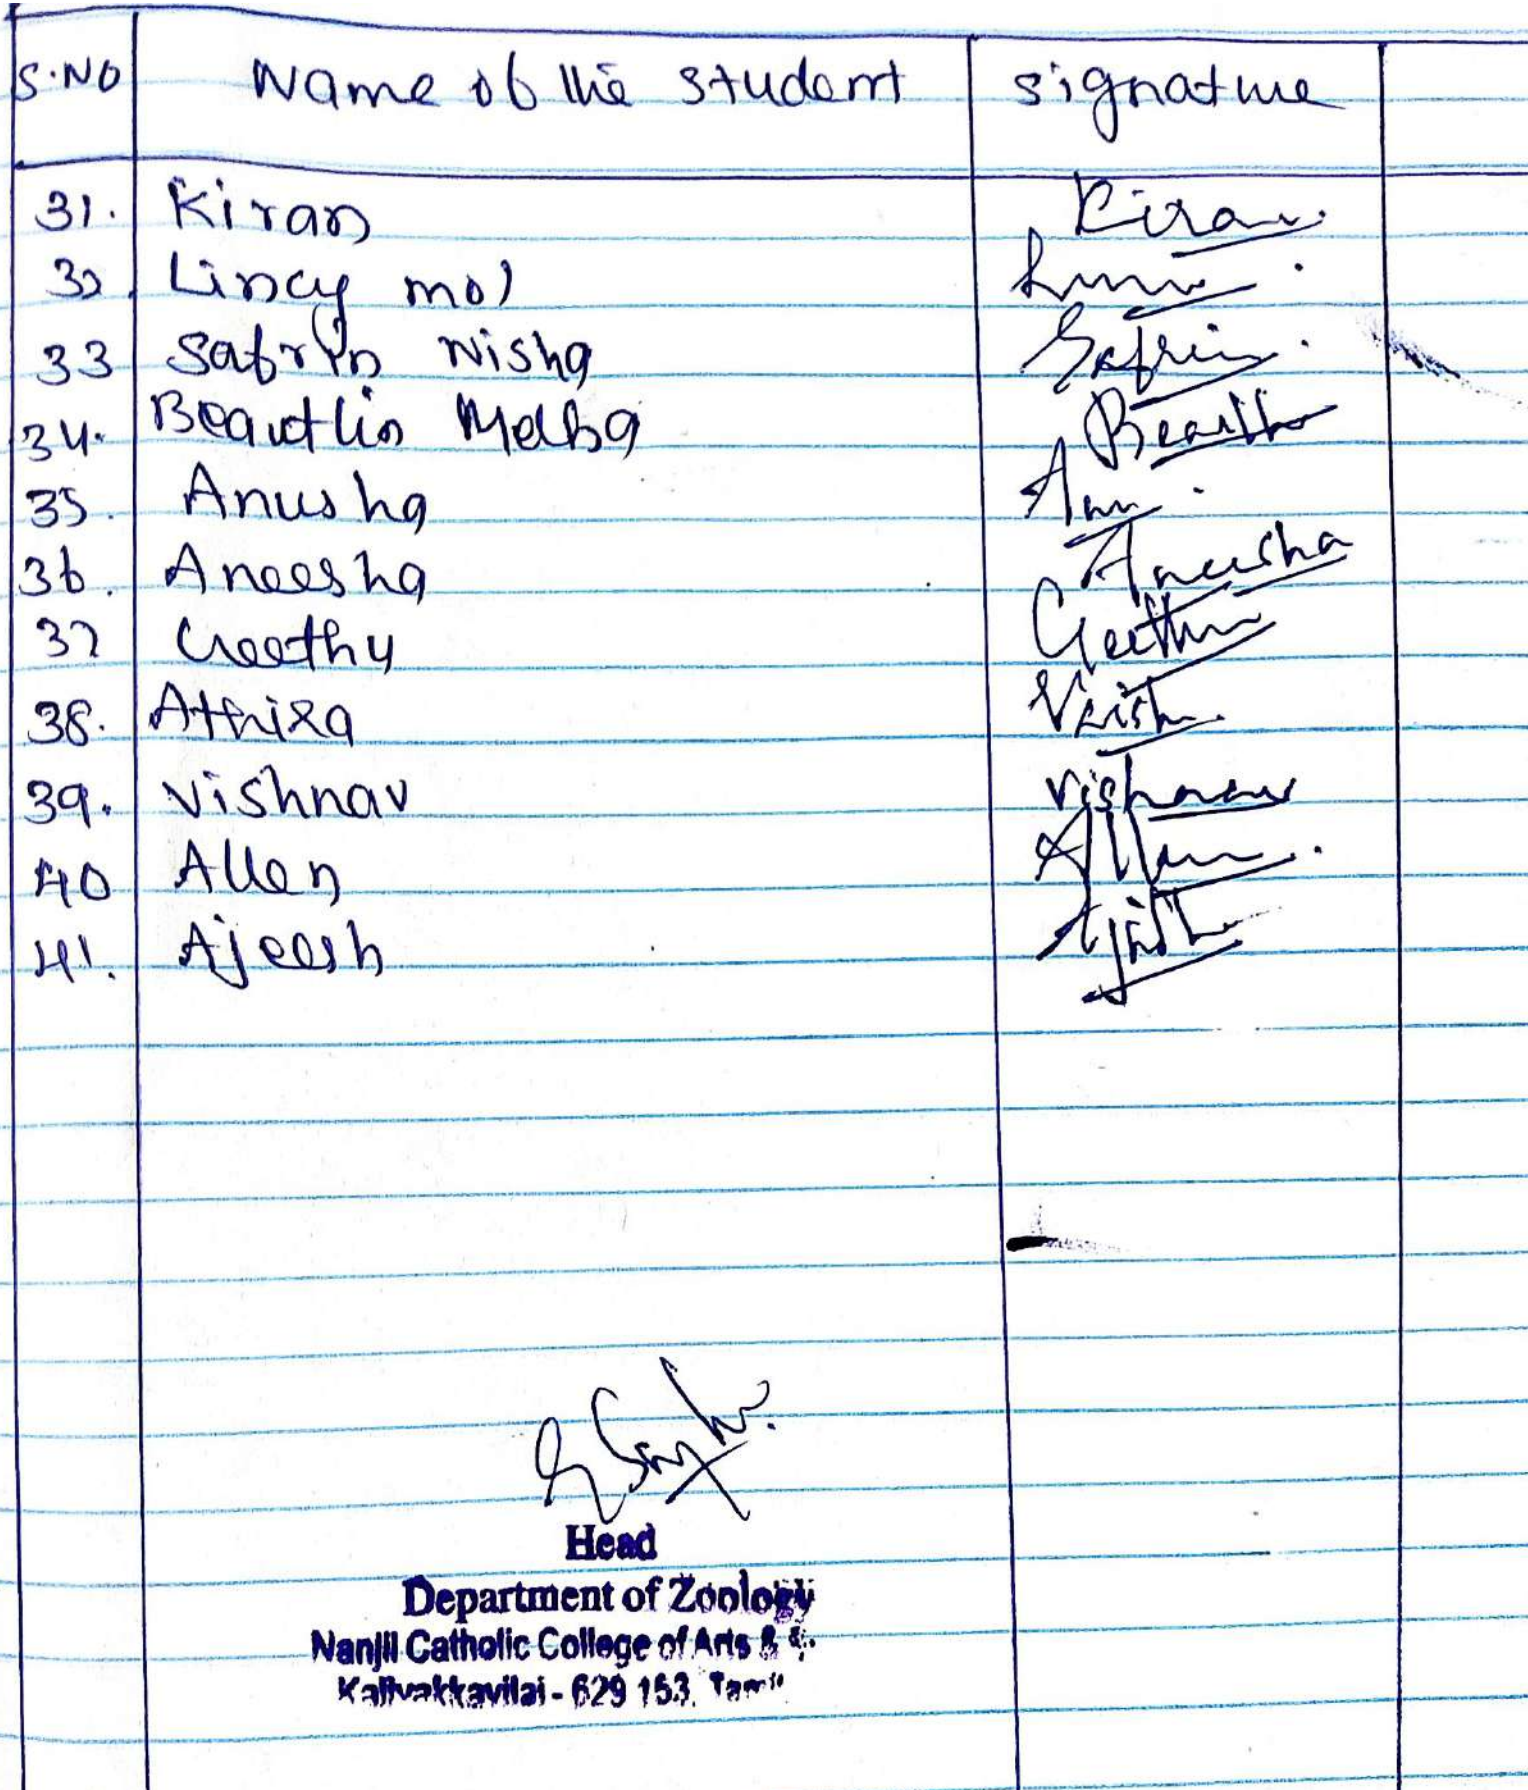 S.NO Name of the student signature
31. Kiran Kiran.
32. Lincy mol
33 Safrin Nisha Safrin.
34. Beautlin Melba
35. Anusha Anu.
36. Aneesha Aneesha
37 Geethu Geethu
38. Athira
39. Vishnav Vishnav
40 Allen Allen.
41. Ajeesh
Head
Department of Zoology
Nanjil Catholic College of Arts &
Kaliyakkavilai - 629 153.